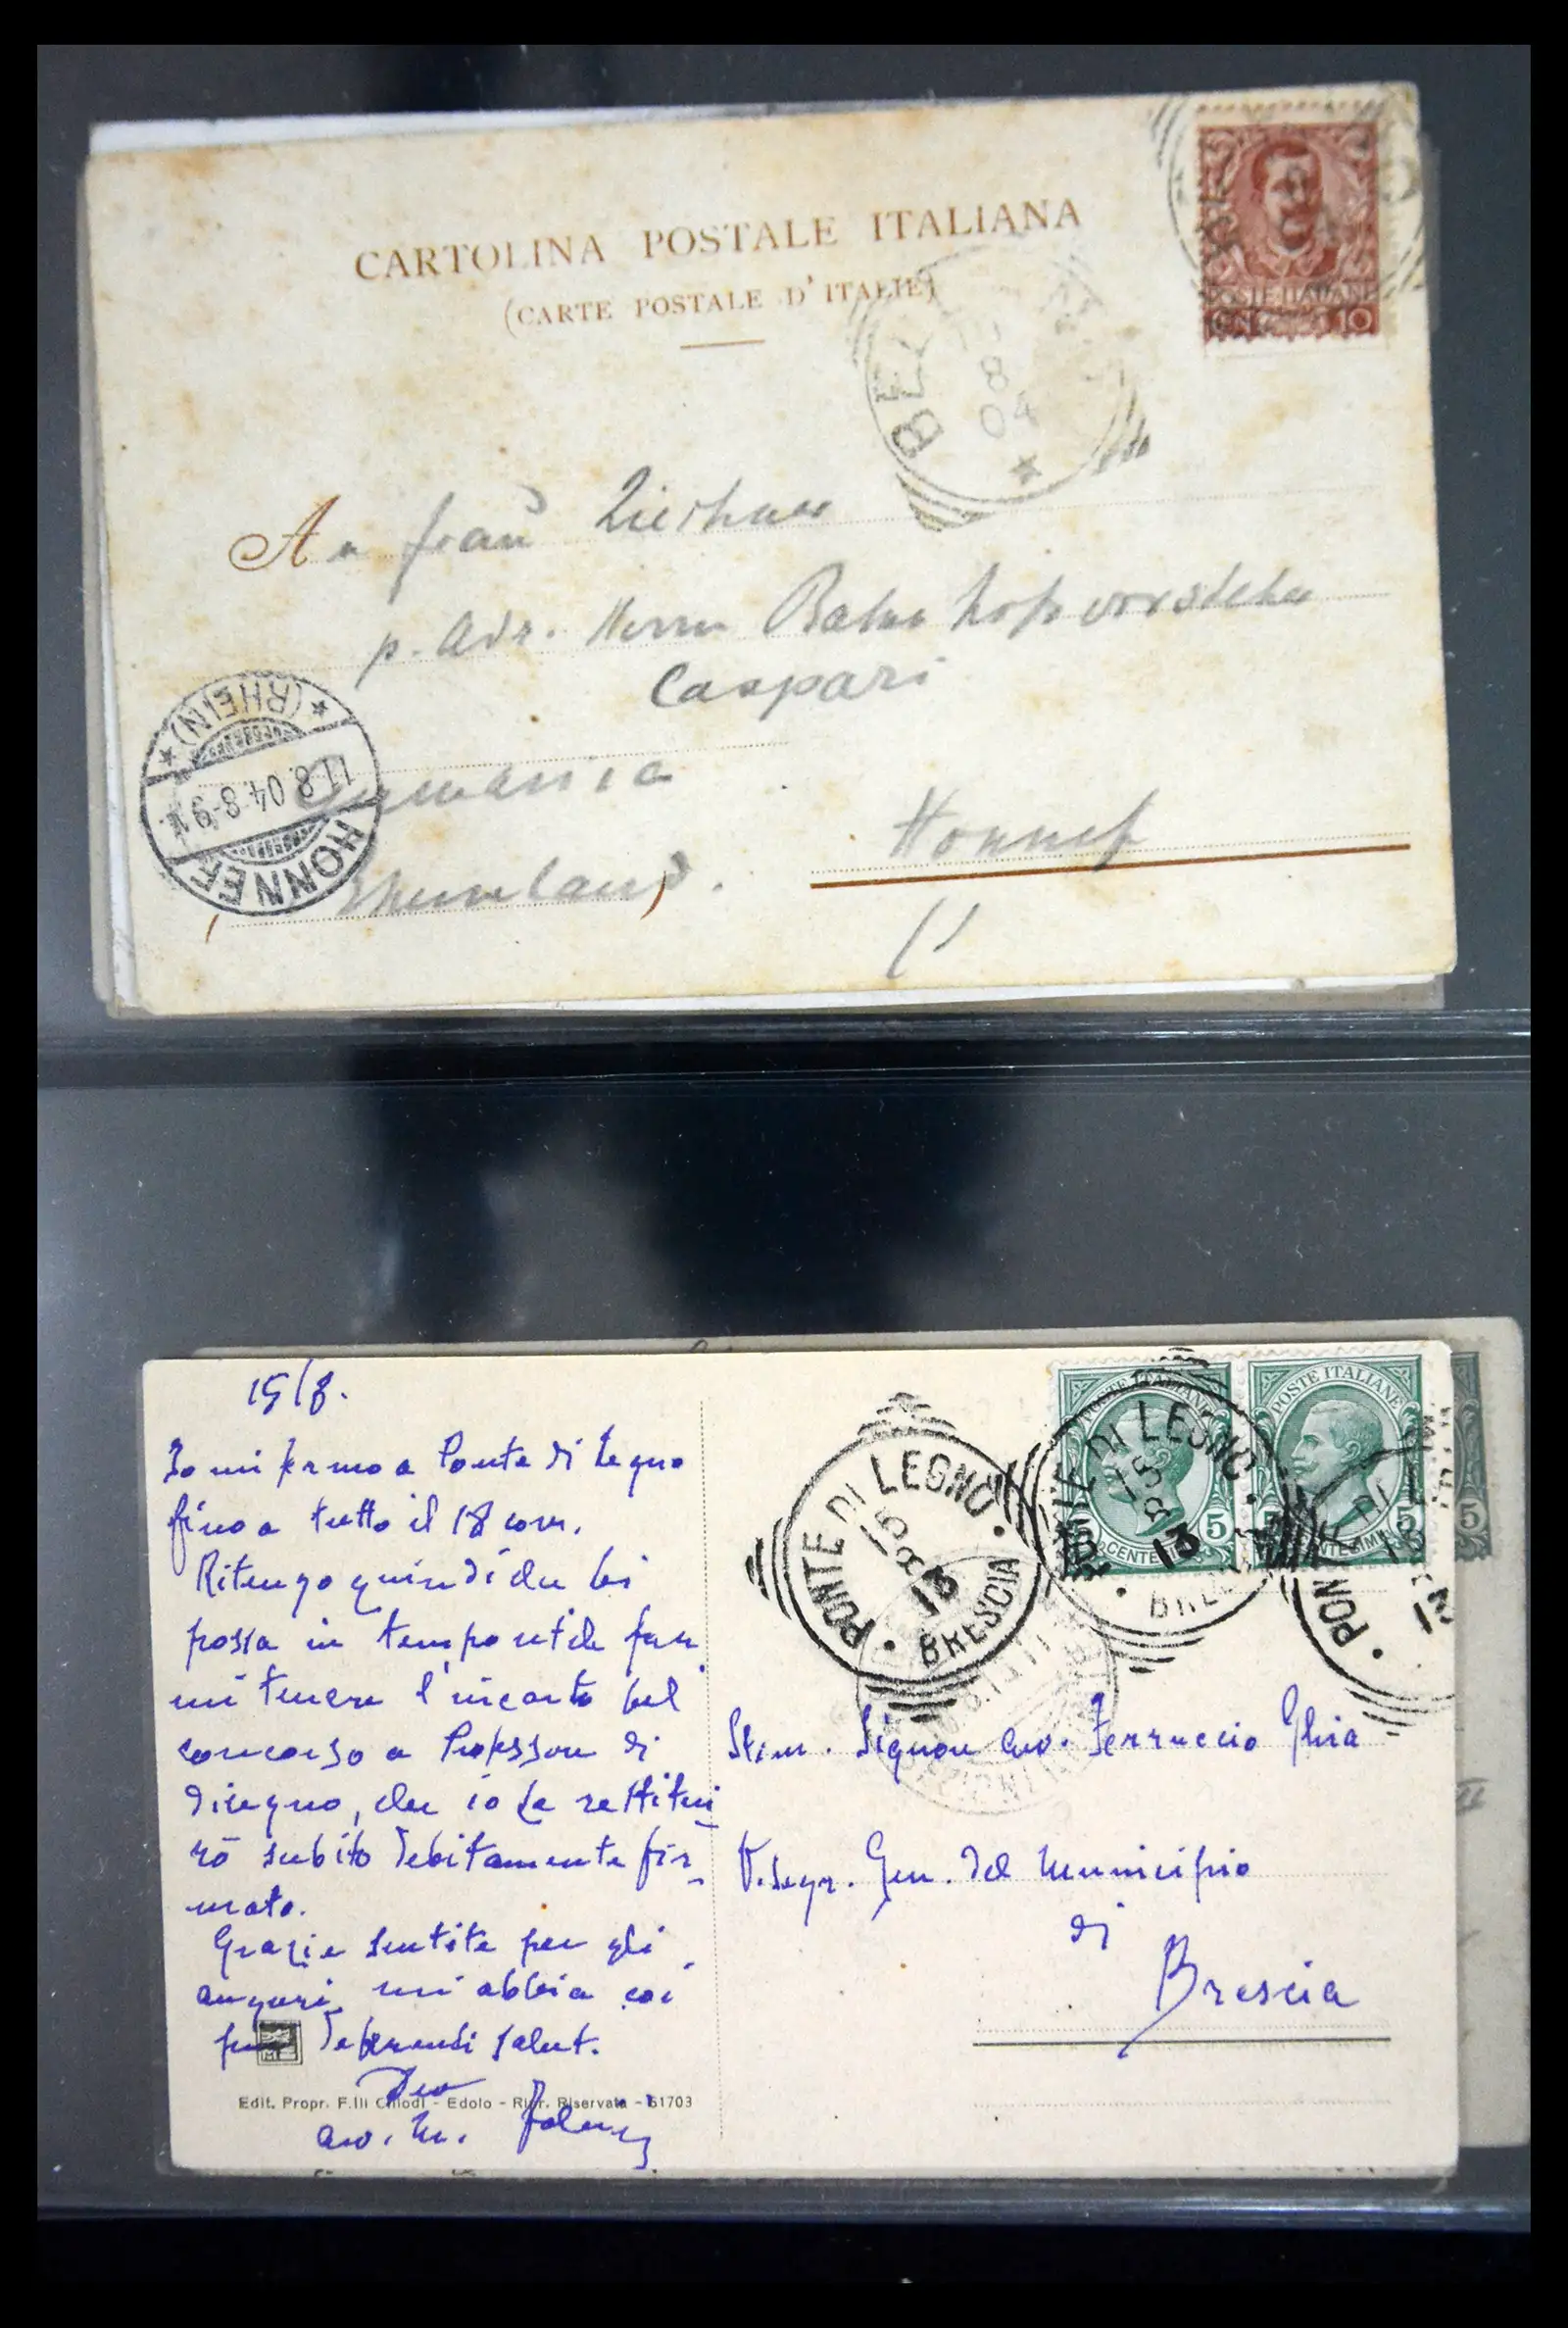 CARTOLINA POSTALE ITALIANA
(CARTE POSTALE D'ITALIE)
POSTE ITALIANE
10
8
04
An Frau
p. Adr. Herrn Bahnhofsvorsteher
Caspari
Germania
Honnef
Rheinland
HONNEF
11.8.04.8-9
(RHEIN)
15/8.
Io mi fermo a Ponte di Legno
fino a tutto il 18 corr.
Ritengo quindi che Lei
possa in tempo utile far
mi tenere l'incarto del
concorso a Professore di
disegno, che io Le restitui
rò subito debitamente fir-
mato.
Grazie sentite per gli
auguri, mi abbia coi
più deferenti salut.
Dev
avv. M.
Edit. Propr. F.lli Chiodi - Edolo - Ripr. Riservata - 61703
POSTE ITALIANE
5 CENTESIMI 5
POSTE ITALIANE
5 CENTESIMI 5
PONTE DI LEGNO
15
8
13
BRESCIA
PONTE DI LEGNO
15
8
13
BRESCIA
Stim. Signor Avv. Ferruccio Ghia
V. Segr. Gen. del Municipio
di
Brescia